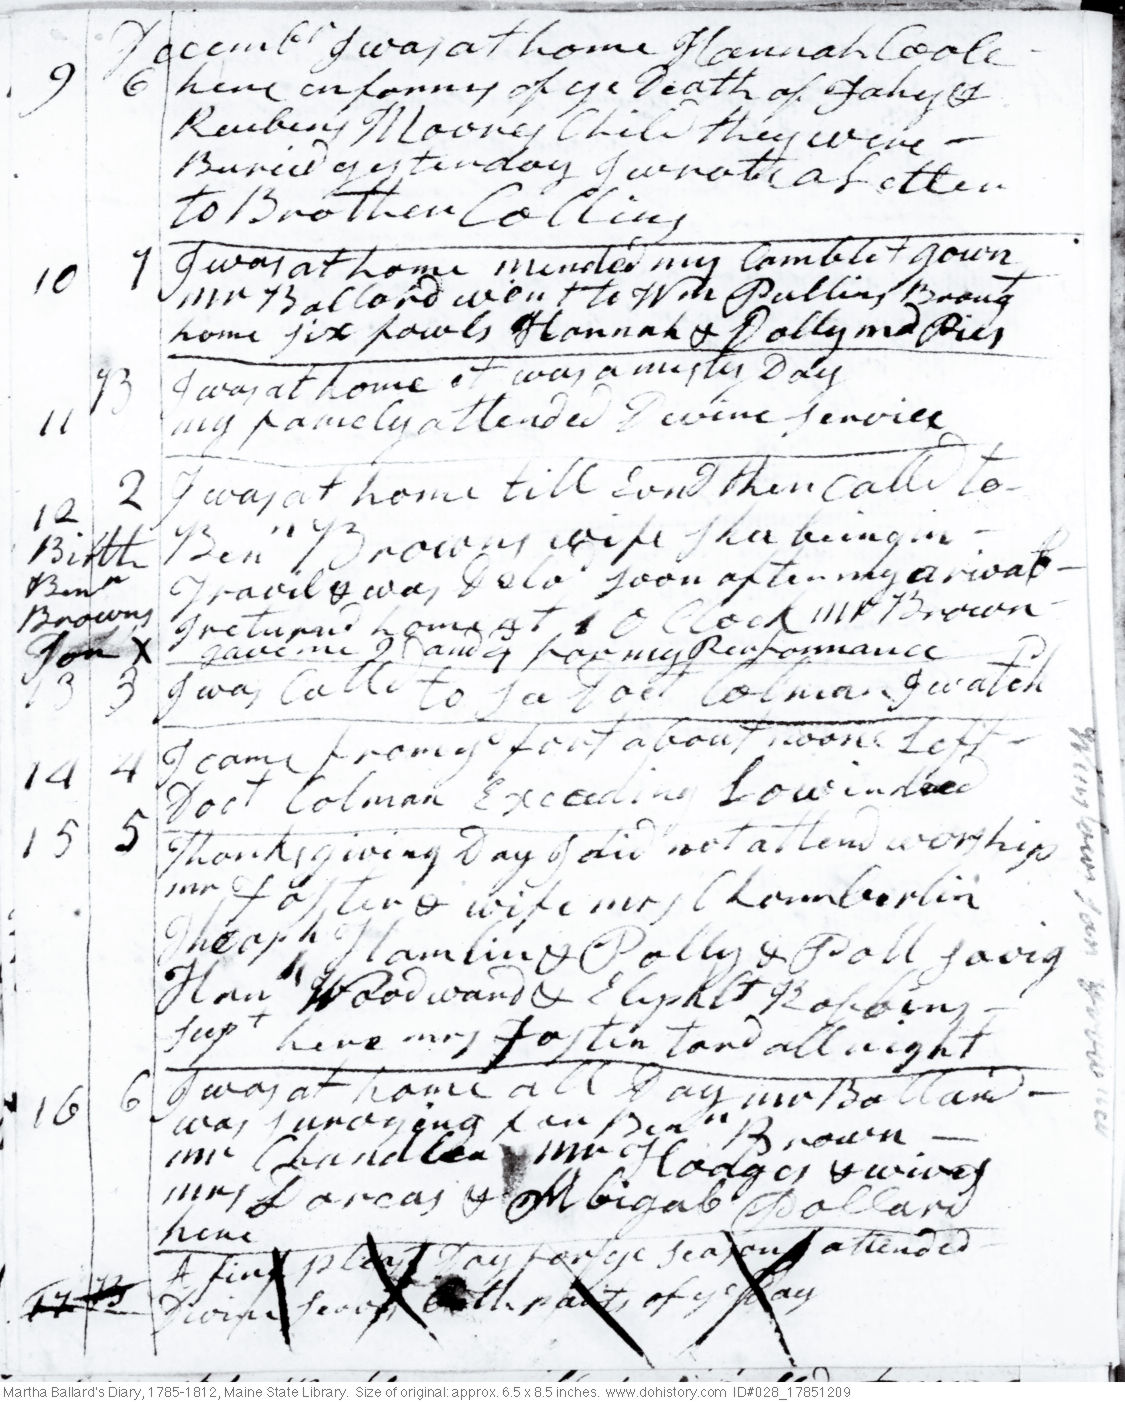 Decembr I was at home Hannah Coole
9 6 here informs of ye Death of Fahy &
Reubens Moores Child they were
Buried yesterday I wrote a Letter
to Brother Collins
10 7 I was at home mended my Camblet gown
mr Ballard went to Wm Pullins Brougt
home six fowls Hannah & Dolly md Pies
11 B I was at home it was a misty Day
my famely attended Devine Service
12 2 I was at home till Evnd then Calld to
Birth Benn Browns wife shee being in
Benn Travil & was Deld soon after my arival
Browns I returnd home at 1 O Clock mr Brown
Son X gave me and for my Performance
13 3 I was Calld to see Doct Colman I watch
14 4 I came from ye fort about noone Left
Doct Colman Exceeding Low indeed
15 5 Thanksgiving Day I did not attend worship
mr Foster & wife mrs Chamberlin
Theoph Hamlin & Polly & Poll Savig
Hanh Woodward & Eliphlt Robbins
supt here mrs Foster tard all night
16 6 I was at home all Day mr Ballard
was surveying for Benn Brown
mr Chandler mr Hodges & wives
mrs Dorcas & Abigal Pollard
here
17 B A fine pleast Day for ye season I attended
Divine Servs both parts of ye Day
Martha Ballard's Diary, 1785-1812, Maine State Library. Size of original: approx. 6.5 x 8.5 inches. www.dohistory.com ID#028_17851209